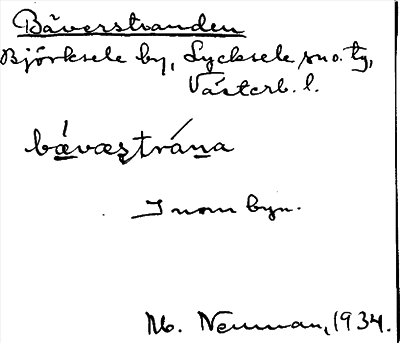 Bäverstranden
Björksele by, Lycksele sno. tg,
Västerb. l.
bævæstrána
Inom byn.
M. Neuman, 1934.